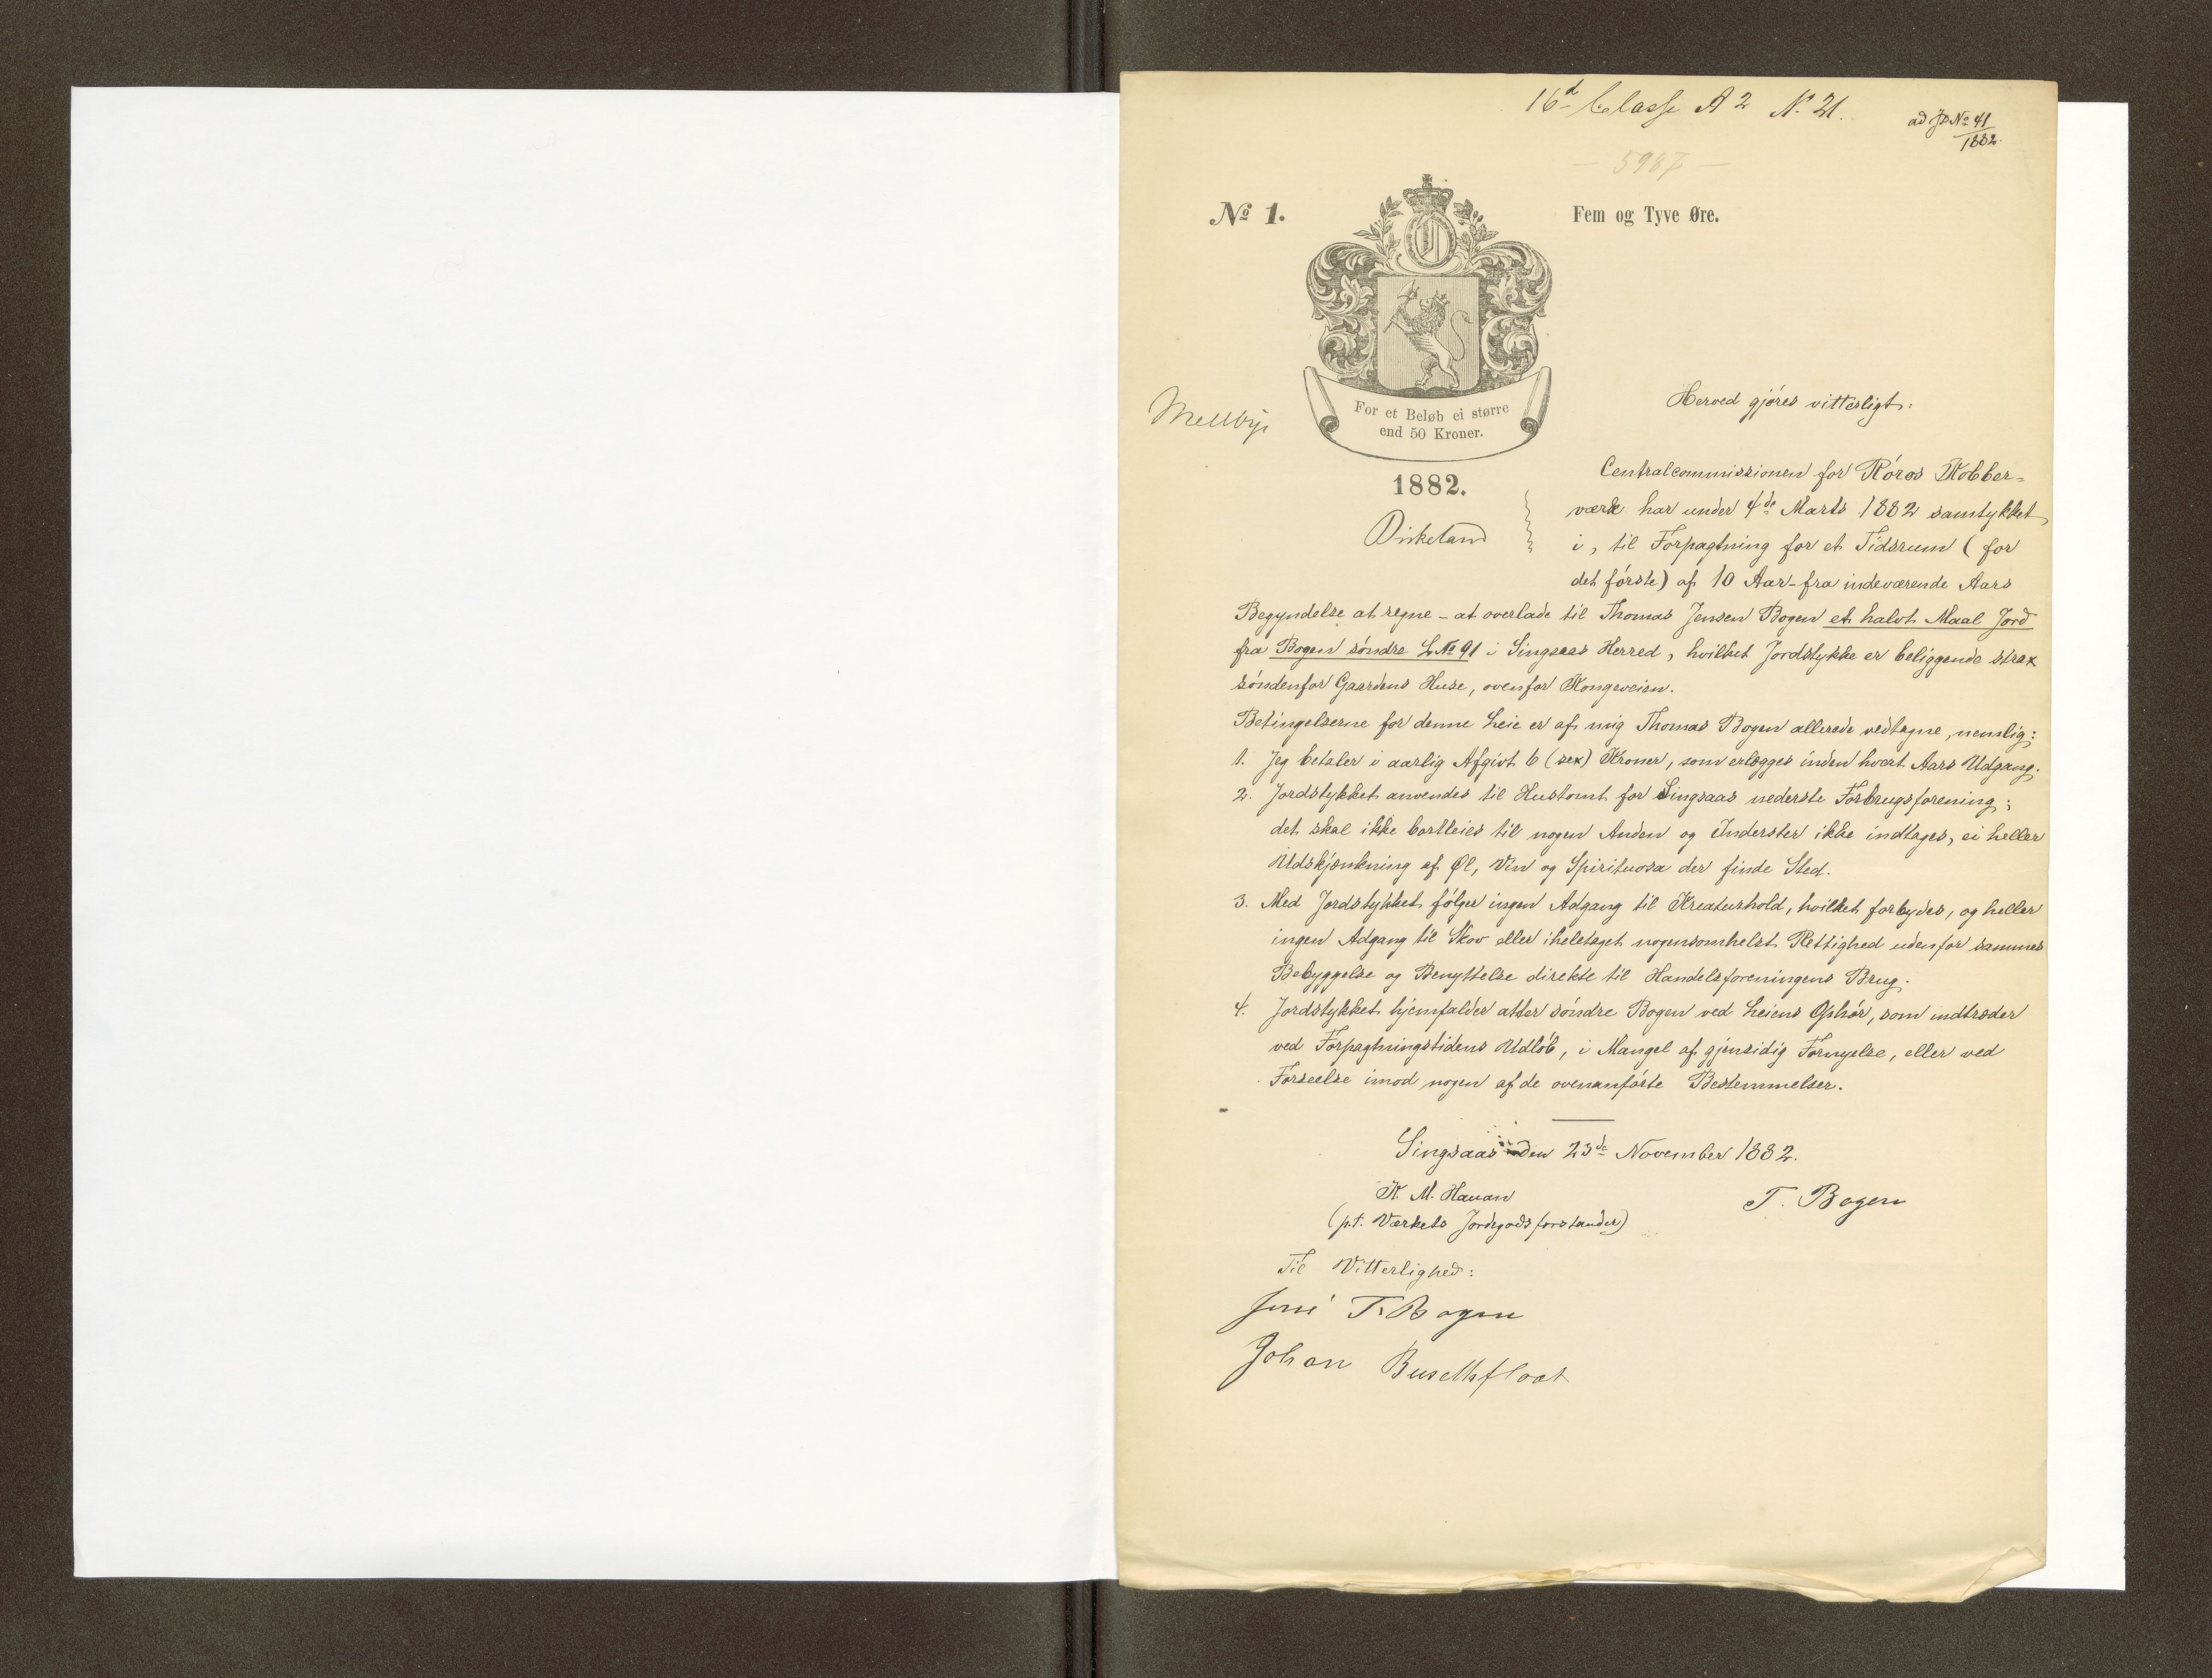 16d Classe A 2 No. 21.
ad JP No 41
1882.
— 5987 —
No 1.
Fem og Tyve Øre.
For et Beløb ei større
end 50 Kroner.
1882.
Herved gjöres vitterligt:
Centralcommissionen for Röros Kobber-
værk har under 4de Marts 1882 samtykket
i, til Forpagtning for et Tidsrum (for
det förste) af 10 Aar - fra indeværende Aars
Begyndelse at regne - at overlade til Thomas Jensen Bogen et halvt Maal Jord
fra Bogen söndre L No 91 i Singsaas Herred, hvilket Jordstykke er beliggende strax
söndenfor Gaardens Huse, ovenfor Kongeveien.
Betingelserne for denne Leie er af mig Thomas Bogen allerede vedtagne, nemlig:
1. Jeg betaler i aarlig Afgivt 6 (sex) Kroner, som erlægges inden hvert Aars Udgang.
2. Jordstykket anvendes til Hustomt for Singsaas nederste Forbrugsforening;
det skal ikke bortleies til nogen Anden og Inderster ikke indtages, ei heller
Udskjænkning af Øl, Vin og Spirituosa der finde Sted.
3. Med Jordstykket fölger ingen Adgang til Kreaturhold, hvilket forbydes, og heller
ingen Adgang til Skov eller iheletaget nogensomhelst Rettighed udenfor sammes
Bebyggelse og Benyttelse direkte til Handelsforeningens Brug.
4. Jordstykket hjemfalder atter söndre Bogen ved Leiens Ophör, som indtræder
ved Forpagtningstidens Udlöb, i Mangel af gjensidig Fornyelse, eller ved
Forseelse imod nogen af de ovenanförte Bestemmelser.
Singsaas den 23de November 1882.
K. M. Hauan
T. Bogen
(p.t. Værkets Jordegodsforstander)
Til Vitterlighed:
Jens T. Bogen
Johan Busethfloat